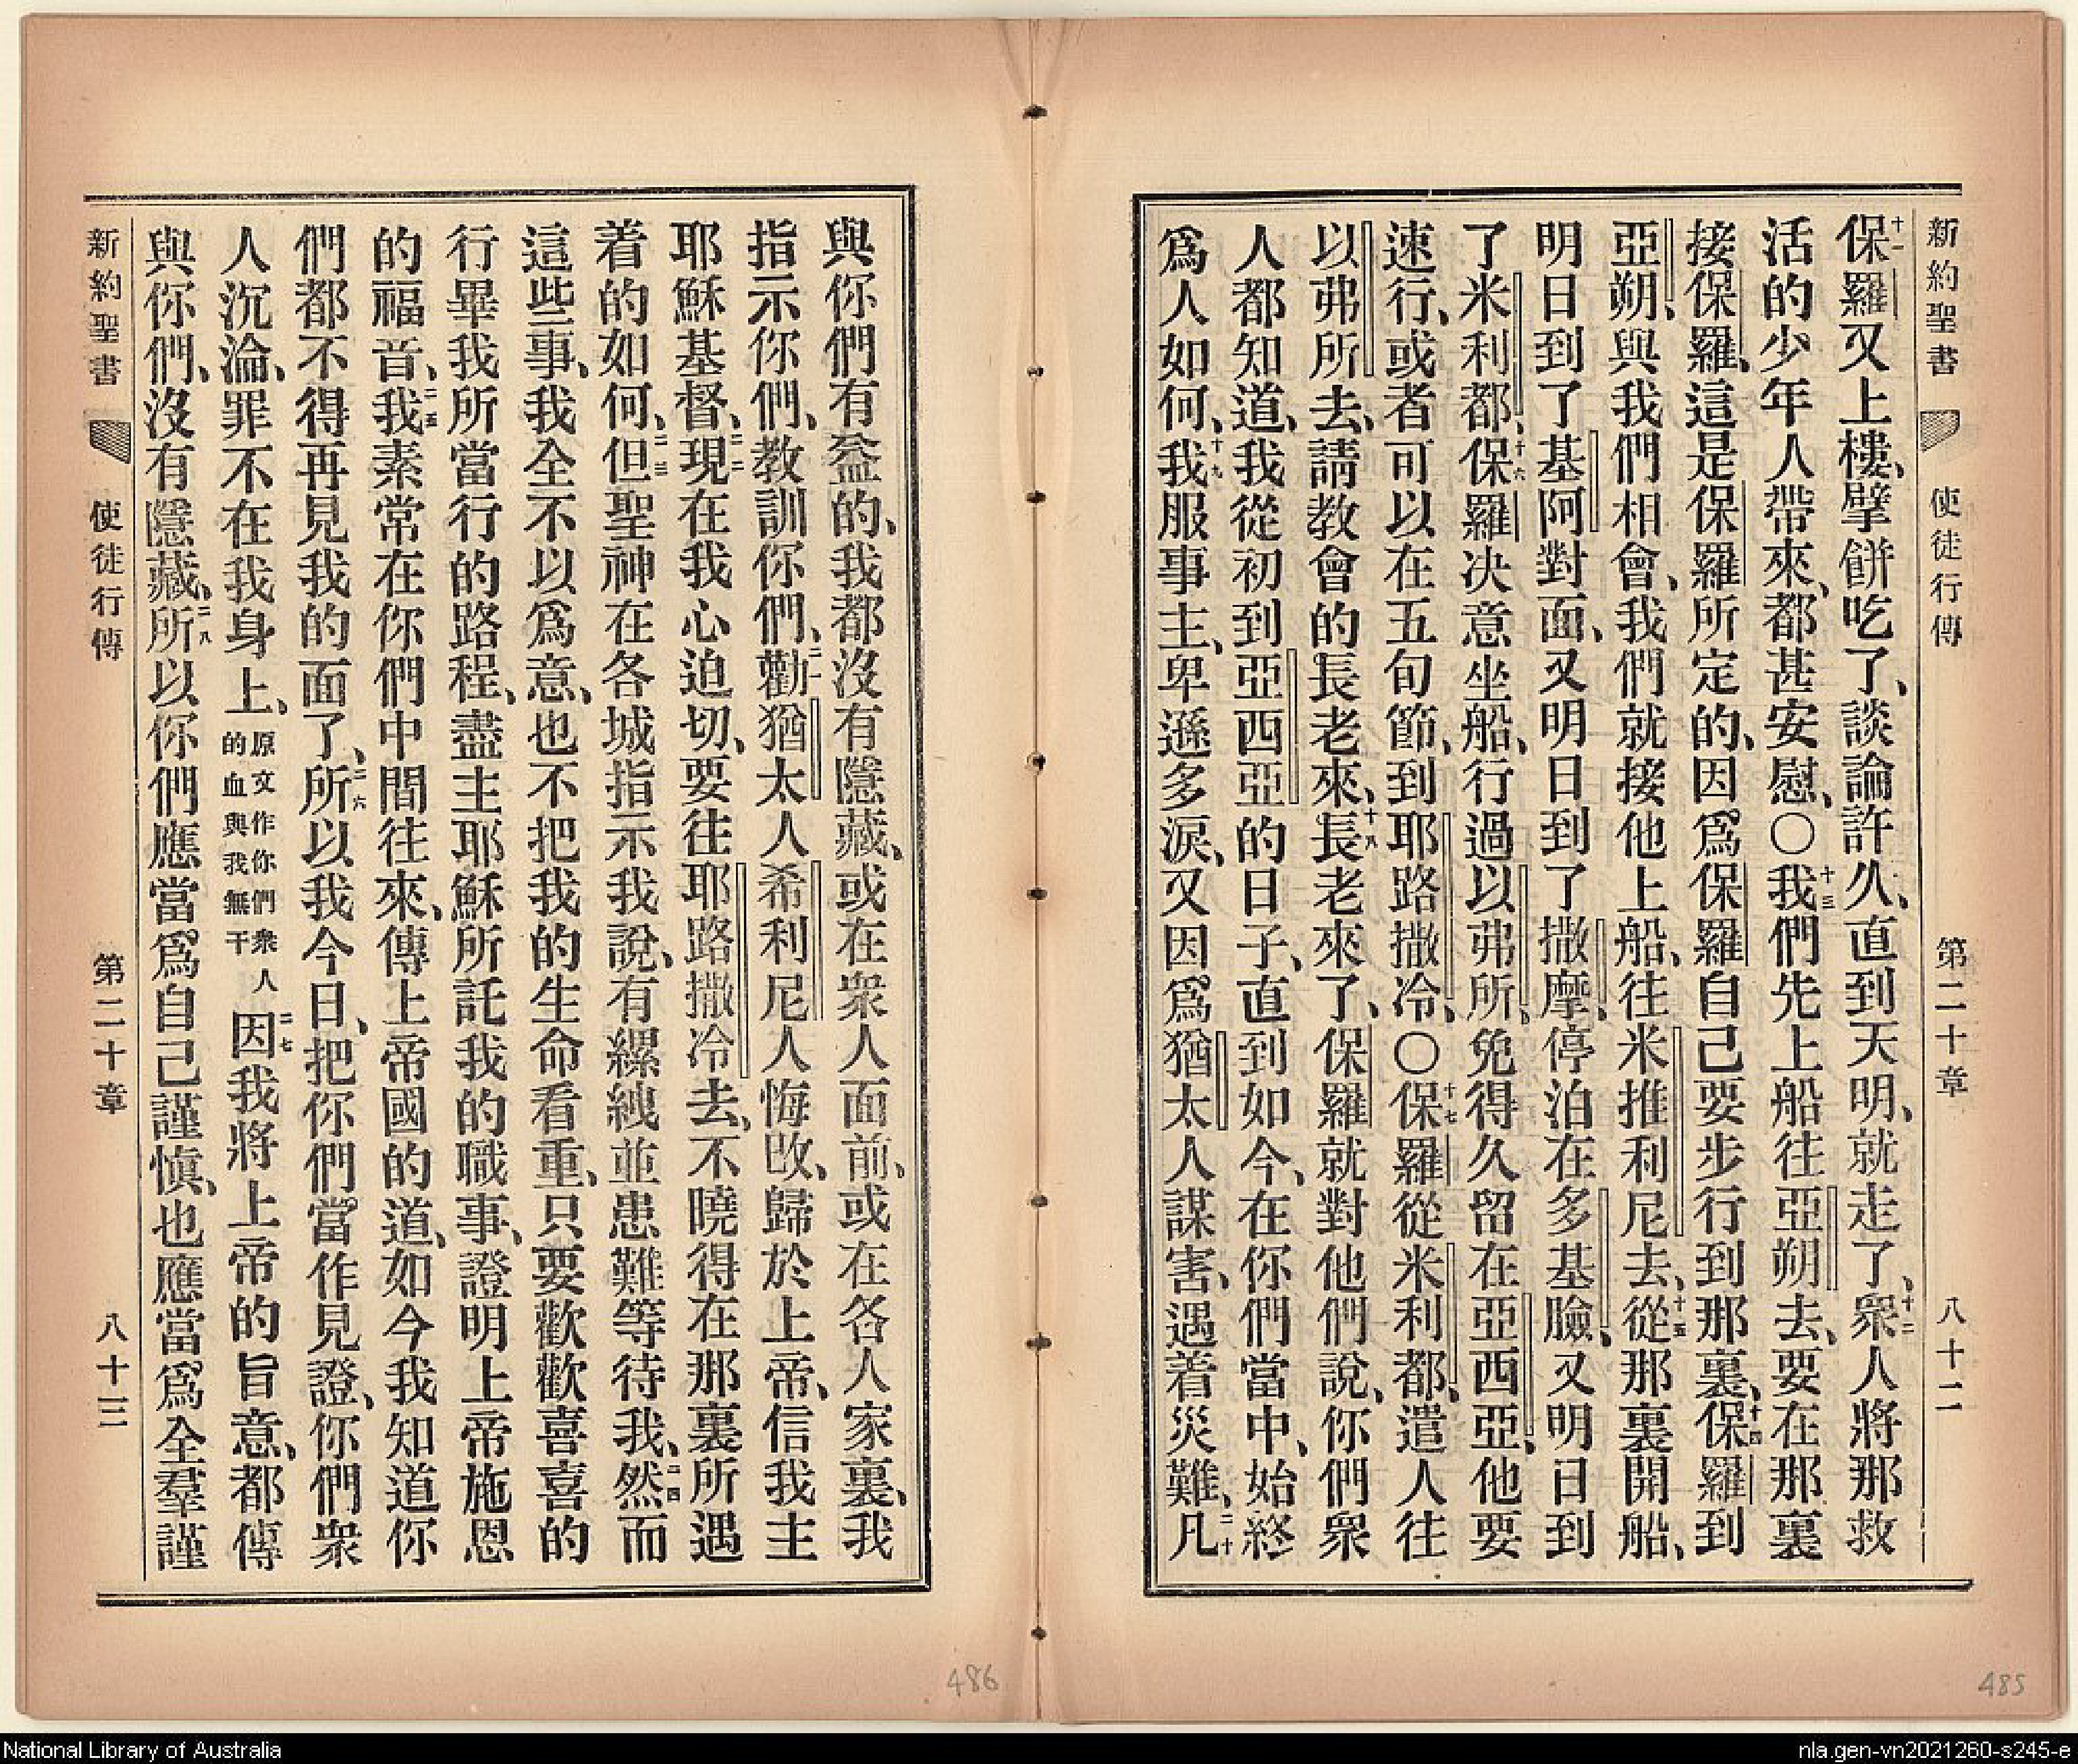 新約聖書 使徒行傳 第二十章 八十二
十一保羅又上樓、擘餅吃了、談論許久、直到天明、就走了、十二衆人將那救
活的少年人帶來、都甚安慰、〇十三我們先上船往亞朔去、要在那裏
接保羅、這是保羅所定的、因爲保羅自己要步行到那裏、十四保羅到
亞朔、與我們相會、我們就接他上船、往米推利尼去、十五從那裏開船、
明日到了基阿對面、又明日到了撒摩、停泊在多基臉、又明日到
了米利都、十六保羅决意坐船、行過以弗所、免得久留在亞西亞、他要
速行、或者可以在五旬節、到耶路撒冷、〇十七保羅從米利都、遣人往
以弗所去、請教會的長老來、十八長老來了、保羅就對他們說、你們衆
人都知道、我從初到亞西亞的日子、直到如今、在你們當中、始終
爲人如何、十九我服事主、卑遜多淚、又因爲猶太人謀害、遇着災難、二十凡
與你們有益的、我都沒有隱藏、或在衆人面前、或在各人家裏、我
指示你們、教訓你們、二一勸猶太人希利尼人悔改、歸於上帝、信我主
耶穌基督、二二現在我心迫切、要往耶路撒冷去、不曉得在那裏所遇
着的如何、二三但聖神在各城指示我說、有縲絏並患難等待我、二四然而
這些事、我全不以爲意、也不把我的生命看重、只要歡歡喜喜的
行畢我所當行的路程、盡主耶穌所託我的職事、證明上帝施恩
的福音、二五我素常在你們中間往來、傳上帝國的道、如今我知道你
們都不得再見我的面了、二六所以我今日、把你們當作見證、你們衆
人沉淪、罪不在我身上、原文作你們衆人的血與我無干二七因我將上帝的旨意、都傳
與你們、沒有隱藏、二八所以你們應當爲自己謹愼、也應當爲全羣謹
新約聖書 使徒行傳 第二十章 八十三
486
485
National Library of Australia
nla.gen-vn2021260-s245-e